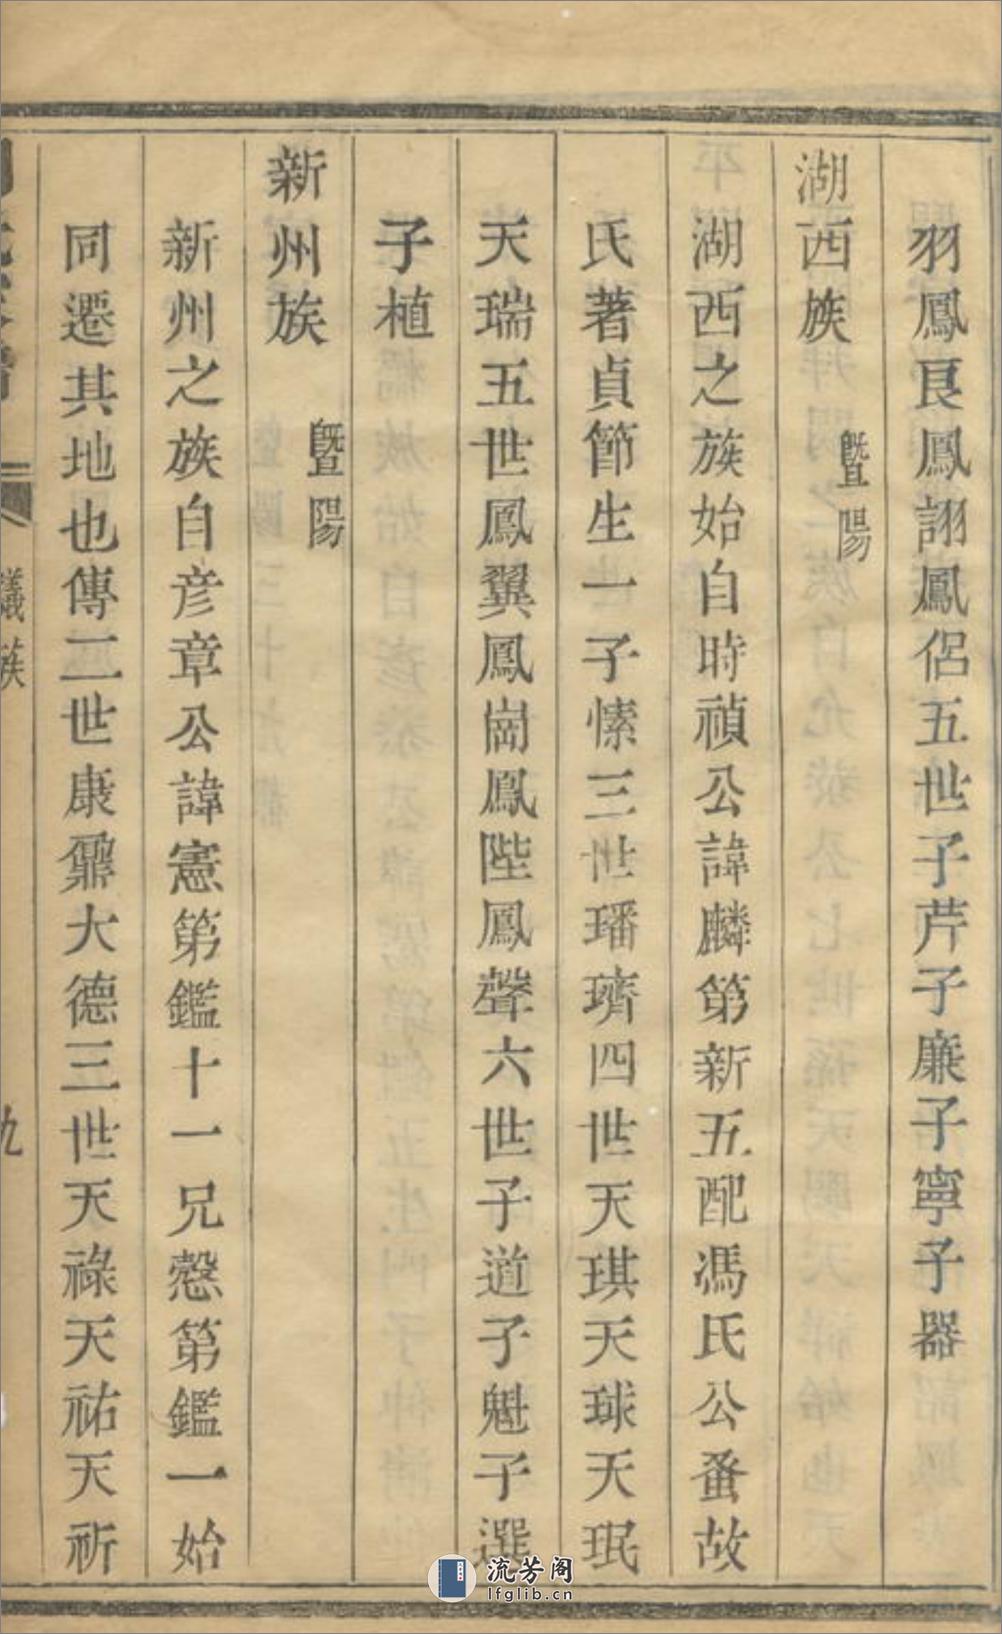 羽鳳良鳳詡鳳侶五世子芹子廉子寧子器
湖西族 暨陽
湖西之族始自時禎公諱麟第新五配馮氏公蚤故
氏著貞節生一子愫三世璠璾四世天琪天球天珉
天瑞五世鳳翼鳳崗鳳陛鳳聲六世子道子魁子選
子植
新州族 暨陽
新州之族自彥章公諱憲第鑑十一兄慤第鑑一始
同遷其地也傳二世康鼐大德三世天祿天祐天祈
族
九
流芳阁
lfglib.cn